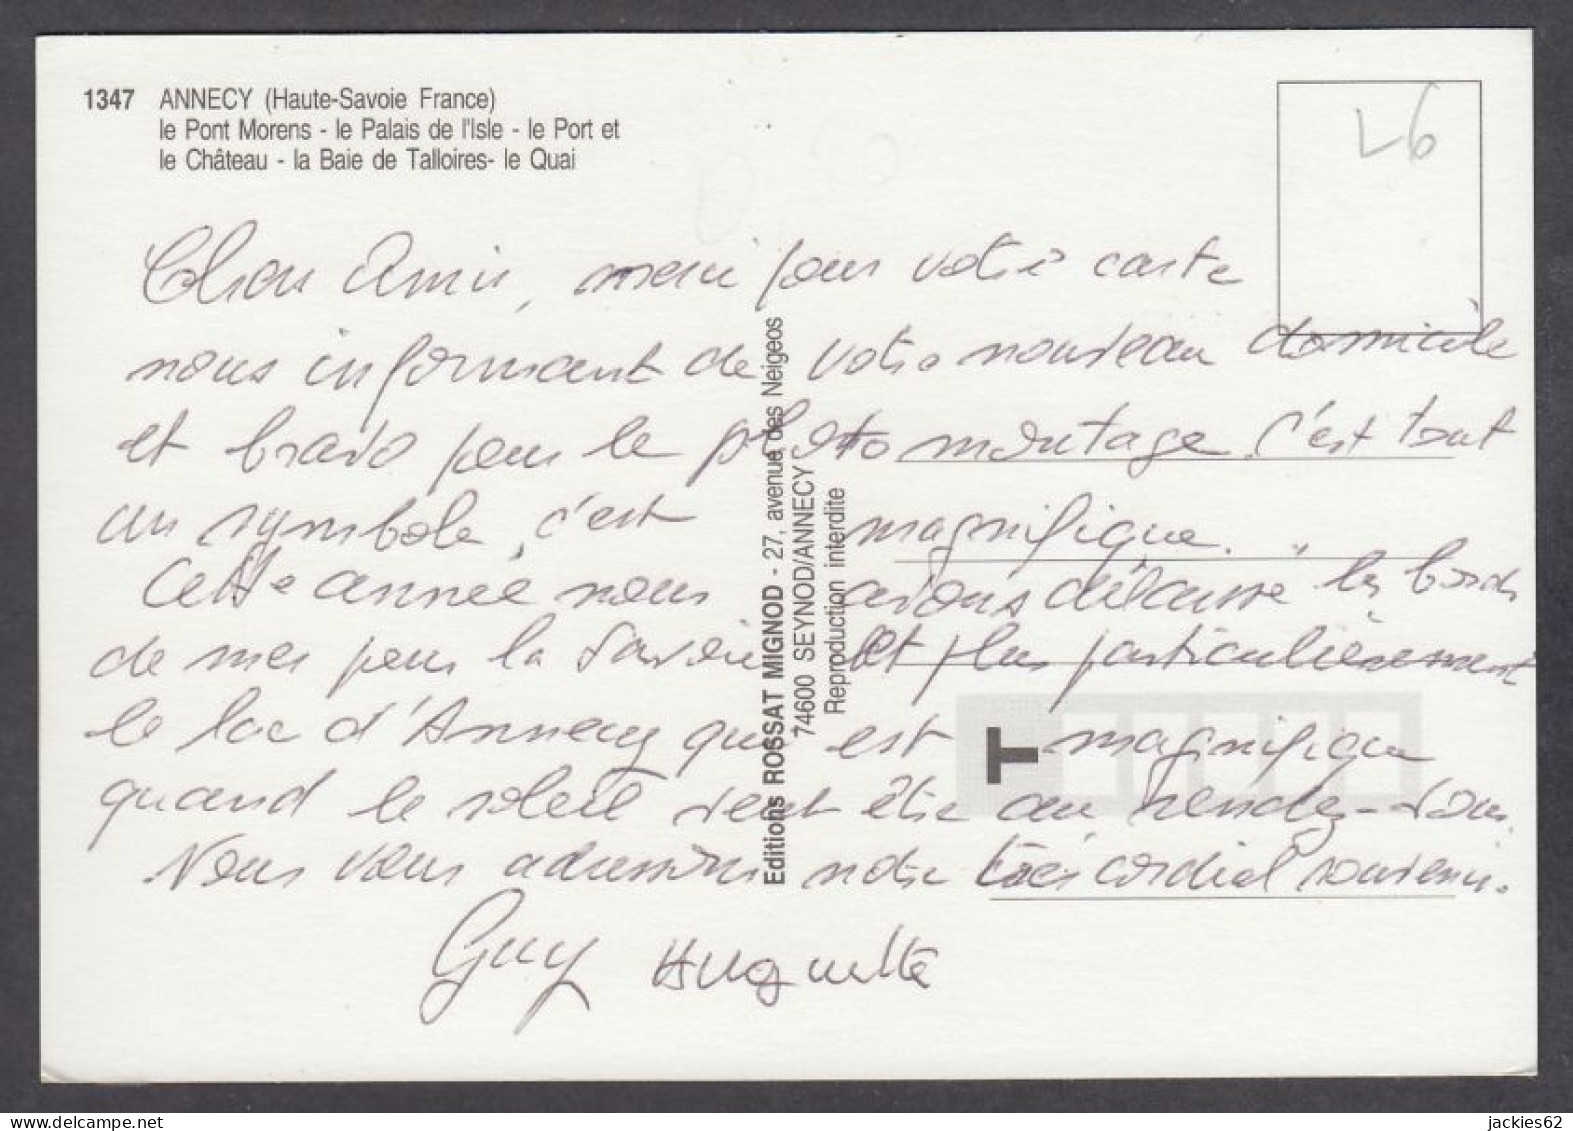 1347 ANNECY (Haute-Savoie France)
le Pont Morens - le Palais de l'Isle - le Port et
le Château - la Baie de Talloires- le Quai
L6
Chers Amis, merci pour votre carte
nous informant de votre nouveau domicile
et bravo pour le photo montage, c'est tout
un symbole, c'est magnifique.
Cette année nous avons délaissé les bords
de mer pour la Savoie et plus particulièrement
le lac d'Annecy qui est magnifique
quand le soleil veut être au rendez-vous.
Nous vous adressons notre très cordial souvenir.
Guy Huguette
Editions ROSSAT MIGNOD - 27, avenue des Neigeos
74600 SEYNOD/ANNECY
Reproduction interdite
T
jackies62